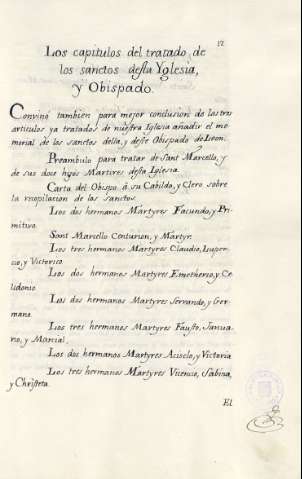 12
Los capitulos del tratado de
los sanctos desta Yglesia,
y Obispado.
Convino tambien para mejor conclusion de los tres
articulos ya tratados de nuestra Iglesia añadir el me-
morial de los sanctos della, y deste Obispado de Leon.
Preambulo para tratar de Sant Marcello, y
de sus doce hijos Martires desta Iglesia.
Carta del Obispo á su Cabildo, y Clero sobre
la recopilacion de los sanctos.
Los dos hermanos Martyres Facundo, y Pri-
mitivo.
Sant Marcello Centurion, y Martyr.
Los tres hermanos Martyres Claudio, Luper-
co, y Victorico.
Los dos hermanos Martyres Emetherio, y Ce-
lidonio.
Los dos hermanos Martyres Servando, y Ger-
mano.
Los tres hermanos Martyres Fausto, Janua-
rio, y Marcial.
Los dos hermanos Martyres Acisclo, y Victoria
Los tres hermanos Martyres Vicente, Sabina,
y Christeta.
El